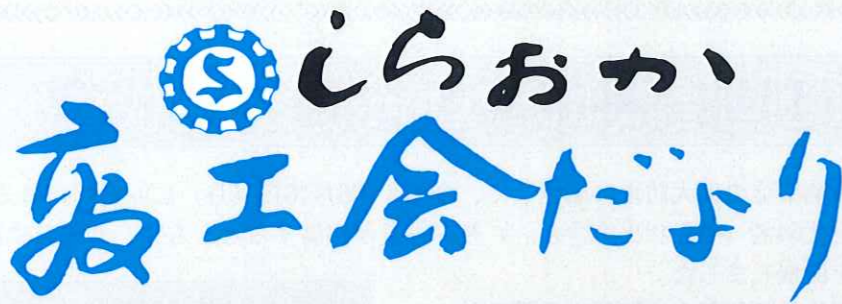 S しらおか
商工会だより